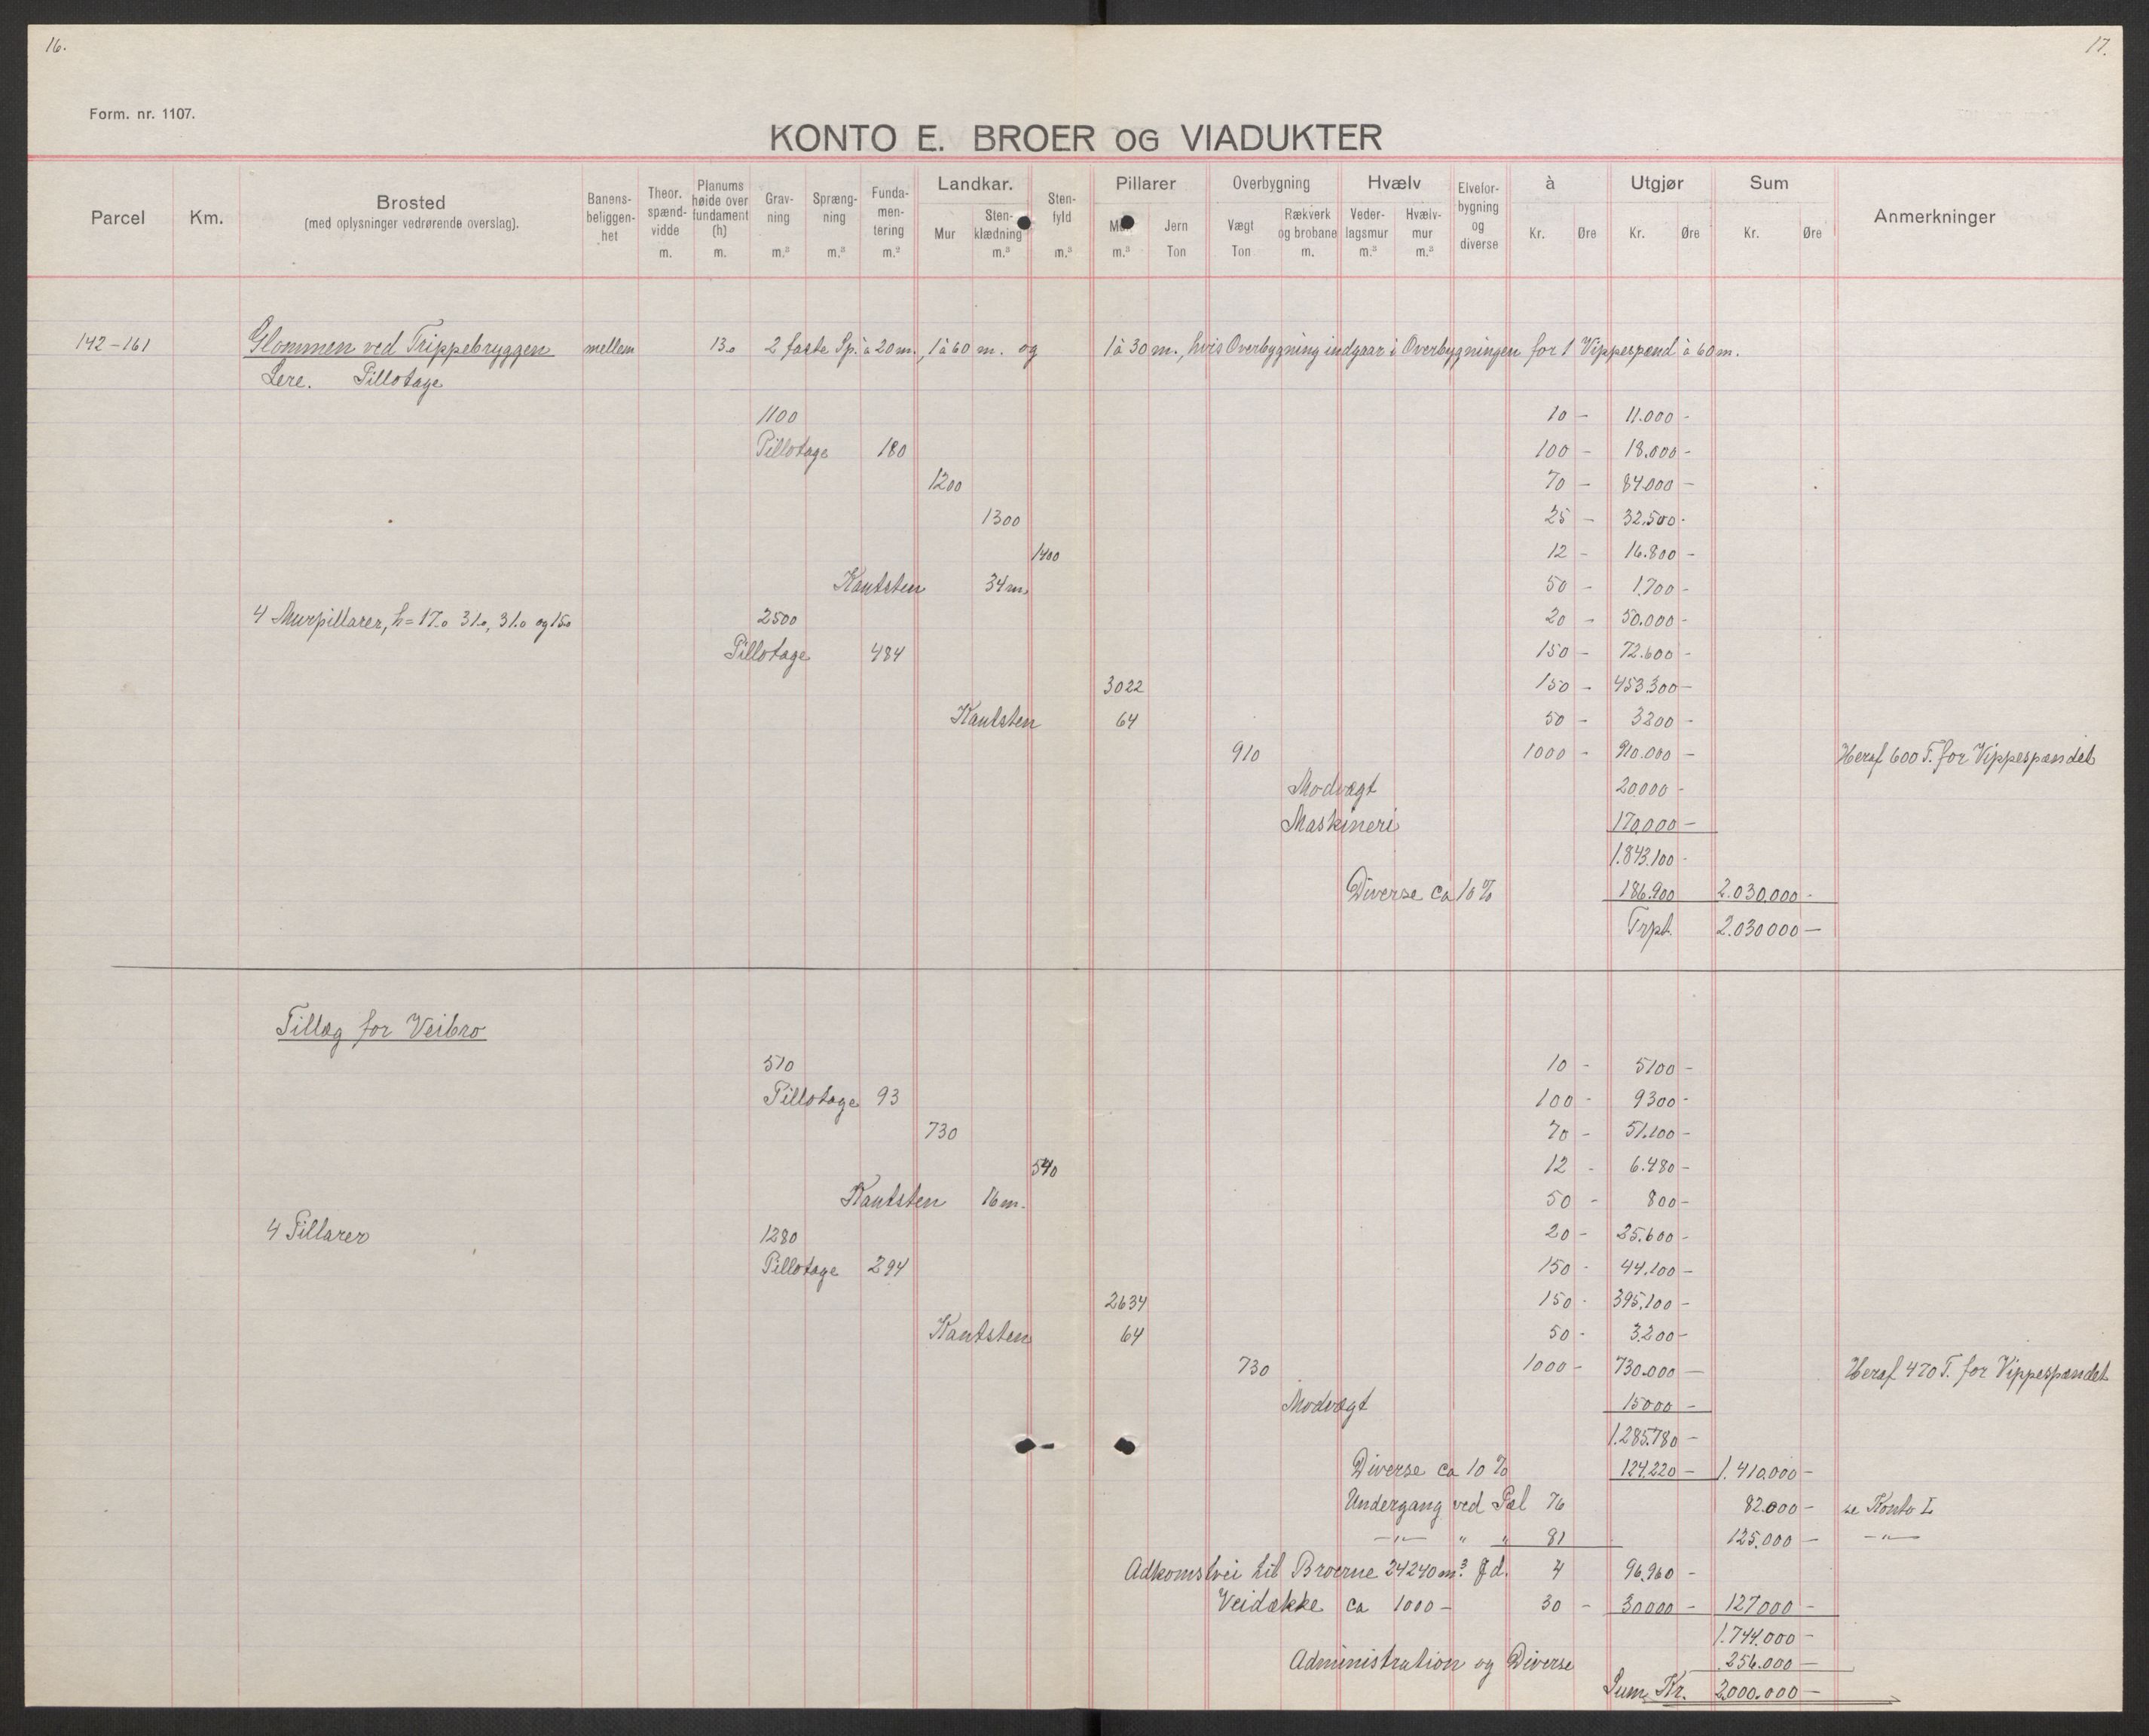 16.
17.
Form. nr. 1107.
KONTO E. BROER OG VIADUKTER
Parcel Km. Brosted (med oplysninger vedrørende overslag). Banens-beliggen-het Theor. spænd-vidde m. Planums høide over fundament (h) m. Grav-ning m.³ Spræng-ning m.³ Funda-men-tering m.² Landkar. Mur Sten-klædning m.³ Sten-fyld m.³ Pillarer m.³ Jern Ton Overbygning Vægt Ton Rækverk og brobane m. Hvælv Veder-lagsmur m.³ Hvælv-mur m.³ Elvefor-bygning og diverse à Kr. Øre Utgjør Kr. Øre Sum Kr. Øre Anmerkninger
142-161 Glommen ved Trippebryggen mellem 13.0 2 faste Sp. à 20 m., 1 à 60 m. og 1 à 30 m., hvis Overbygning indgaar i Overbygningen for 1 Vippespænd à 60 m.
Lere. Pillotage
1100 10 - 11.000 -
Pillotage 180 100 - 18.000 -
1200 70 - 84000 -
1300 25 - 32.500 -
1400 12 - 16.800 -
Kantsten 34 m. 50 - 1.700 -
4 Murpillarer, h = 17.0 31.0, 31.0 og 15.0 2500 20 - 50.000 -
Pillotage 484 150 - 72.600 -
3022 150 - 453.300 -
Kantsten 64 50 - 3200 -
910 1000 - 910.000 - Heraf 600 T. for Vippespændet
Modvægt 20.000 -
Maskineri 170.000 -
1.843.100 -
Diverse ca 10 % 186.900 2.030.000 -
Trpt. 2.030000 -
Tillæg for Veibro
510 10 - 5100 -
Pillotage 93 100 - 9300 -
730 70 - 51.100 -
540 12 - 6.480 -
Kantsten 16 m. 50 - 800 -
4 Pillarer 1280 20 - 25.600 -
Pillotage 294 150 - 44.100 -
2634 150 - 395.100 -
Kantsten 64 50 - 3.200 -
730 1000 - 730.000 - Heraf 470 T. for Vippespændet
Modvægt 15000 -
1.285.780 -
Diverse ca 10 % 124.220 - 1.410.000 -
Undergang ved Pæl 76 82.000 - se Konto L
-"- " " 81 125.000 - -"-
Adkomstvei til Broerne 24240 m³. Jd. 4 96.960 -
Veidække ca 1000 - 30 - 30000 - 127000 -
1.744.000 -
Administration og Diverse 256.000 -
Sum Kr. 2.000.000 -